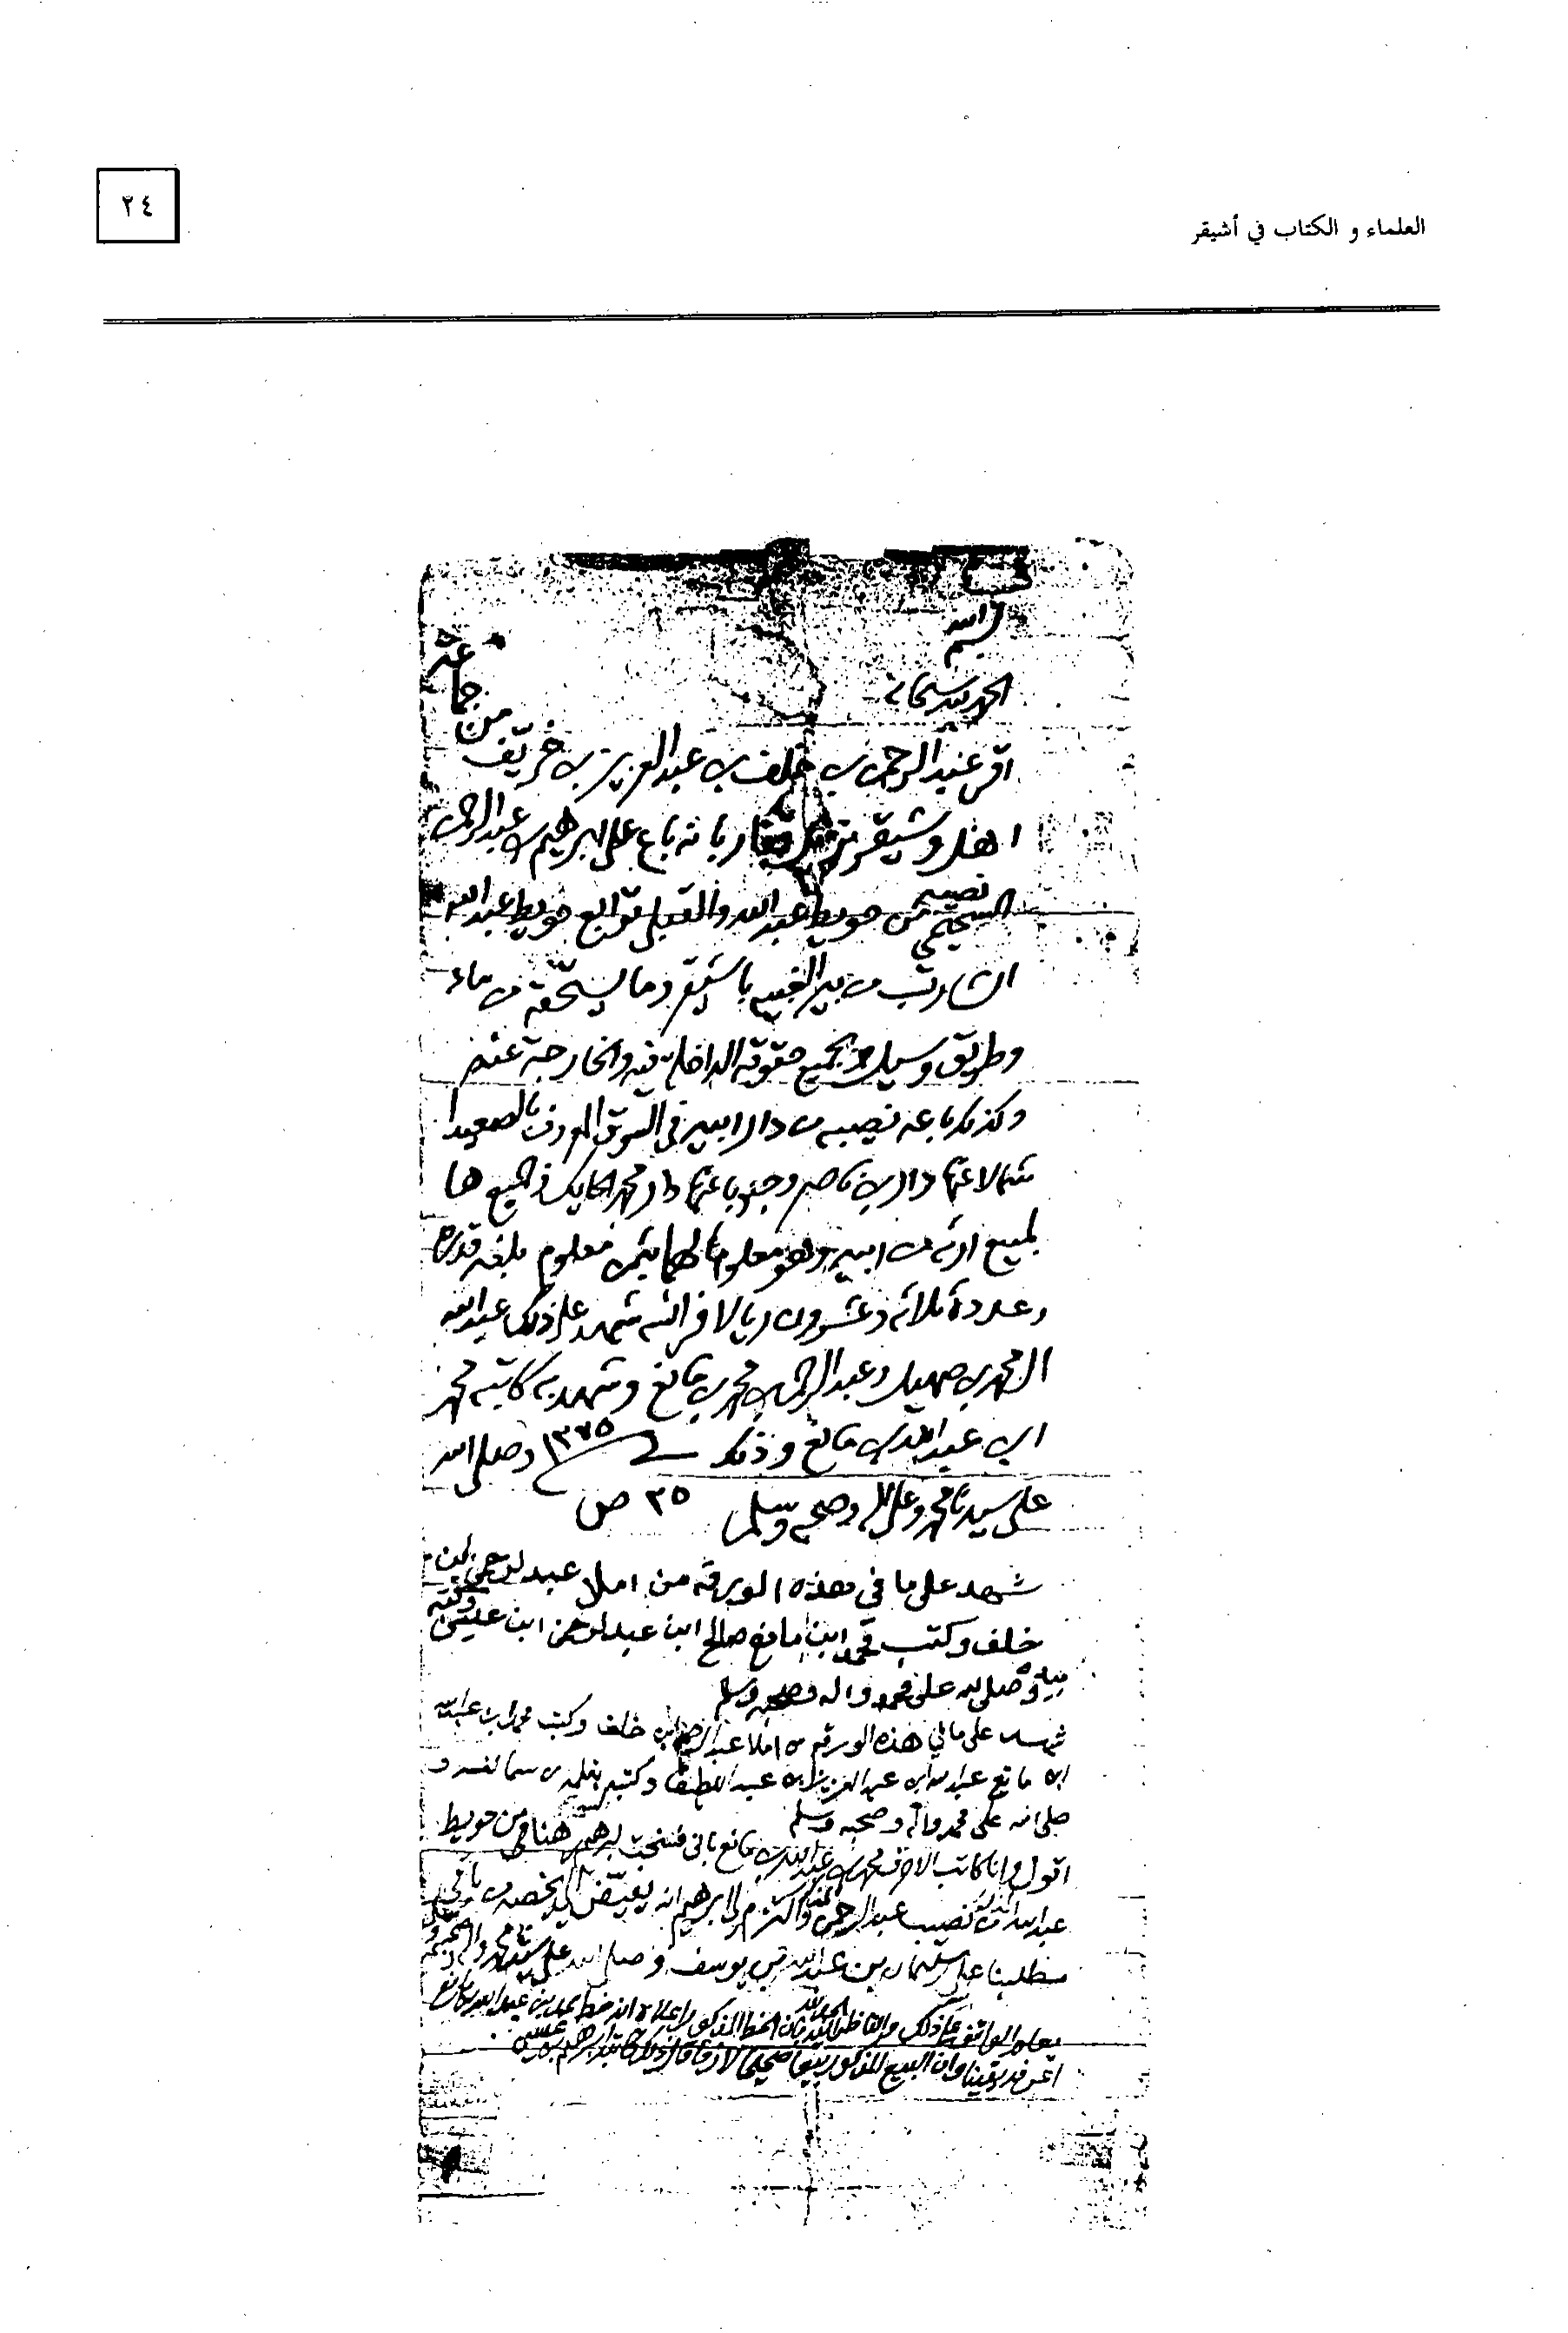 العلماء و الكتاب في أشيقر
٢٤
بسم الله
الحمد لله سبحانه
اقر عبد الرحمن بن خلف بن عبد العزيز بن خريّف من جماعة
اهل وشيقر بانه باع على ابرهيم بن عبد الرحمن
السحيمي نصيبه من حويط عبد الله والقبلي توابع حويط عبد الله
الشارب من بير الغنيم باشيقر وما يستحّقه من ماء
وطريق وسيل بجميع حقوقه الداخلة فيه والخارجة عنه
وكذلك باعه نصيبه من دار ابيه في السّوق المعروف بالصعيدا
شمالا عنها دار بن ناصر وجنوبا عنها دار محمد الحايك
المبيع ارثه من ابيه وهو معلوما لهما بثمن معلوم بلغه قدره
وعدده ثلاثة وعشرون ريالا فرانسه شهد على ذلك عبد الله
ال محمد بن صهيل وعبد الرحمن بن محمد بن مانع وشهد به كاتبه محمد
ابن عبد الله بن مانع وذلك في وصلى الله
على سيدنا محمد وعلى اله وصحبه وسلم ٢٥ ص
شهد على ما في هذه الورقه من املا عبد الرحمن ابن
خلف وكتب محمد ابن مانع صالح ابن عبد الرحمن ابن عيسى وكتبه
بيده وصلى الله على محمد واله وصحبه وسلم
شهد على ما في هذه الورقه من املا عبد الرحمن ابن خلف وكتب محمد ابن عبد الله
ابن مانع عبد الله ابن عبد العزيز ابن عبد اللطيف وكتبه بقلمه
صلى الله على محمد واله وصحبه وسلم
اقول وانا كاتب الاحرف محمد بن عبد الله بن مانع باني لبرهيم من حويط
عبد الله نصيب عبد الرحمن والتزم لي ابرهيم انه
مطلبنا على سليمان بن عبد الله بن يوسف وصلى الله على سيدنا محمد واله وصحبه وسلم
الحمد لله
يعلم الواقف على ذلك والناظر اليه بان الخط المذكور اعلاه انه خط محمد بن عبد الله بن مانع
اعرفه يقينا وان البيع المذكور بيعا صحيحا لازما قال ذلك كاتبه ابرهيم بن عيسى